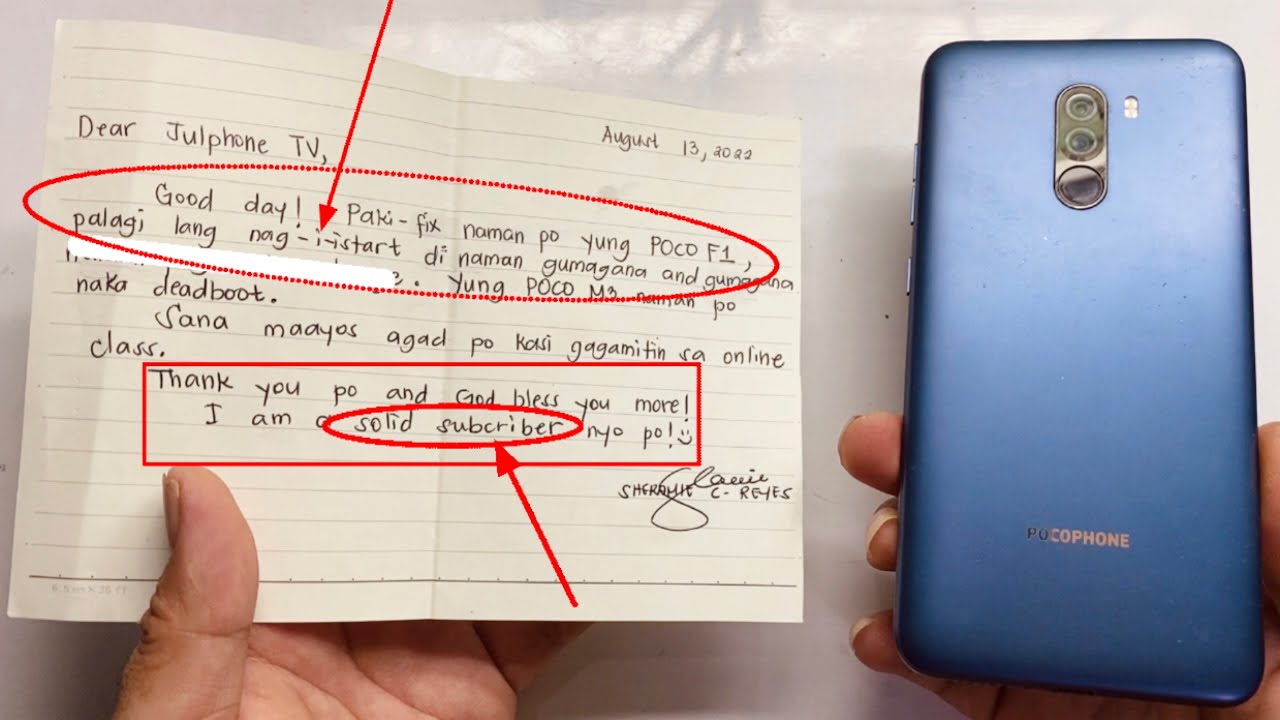 Dear Julphone TV,
August 13, 2022
Good day! Paki-fix naman po yung POCO F1,
palagi lang nag-i-istart di naman gumagana and gumagana
. Yung POCO M3 naman po
naka deadboot.
Sana maayos agad po kasi gagamitin sa online
class.
Thank you po and God bless you more!
I am a solid subcriber nyo po!
C- REYES
6.5mm X 35
POCOPHONE